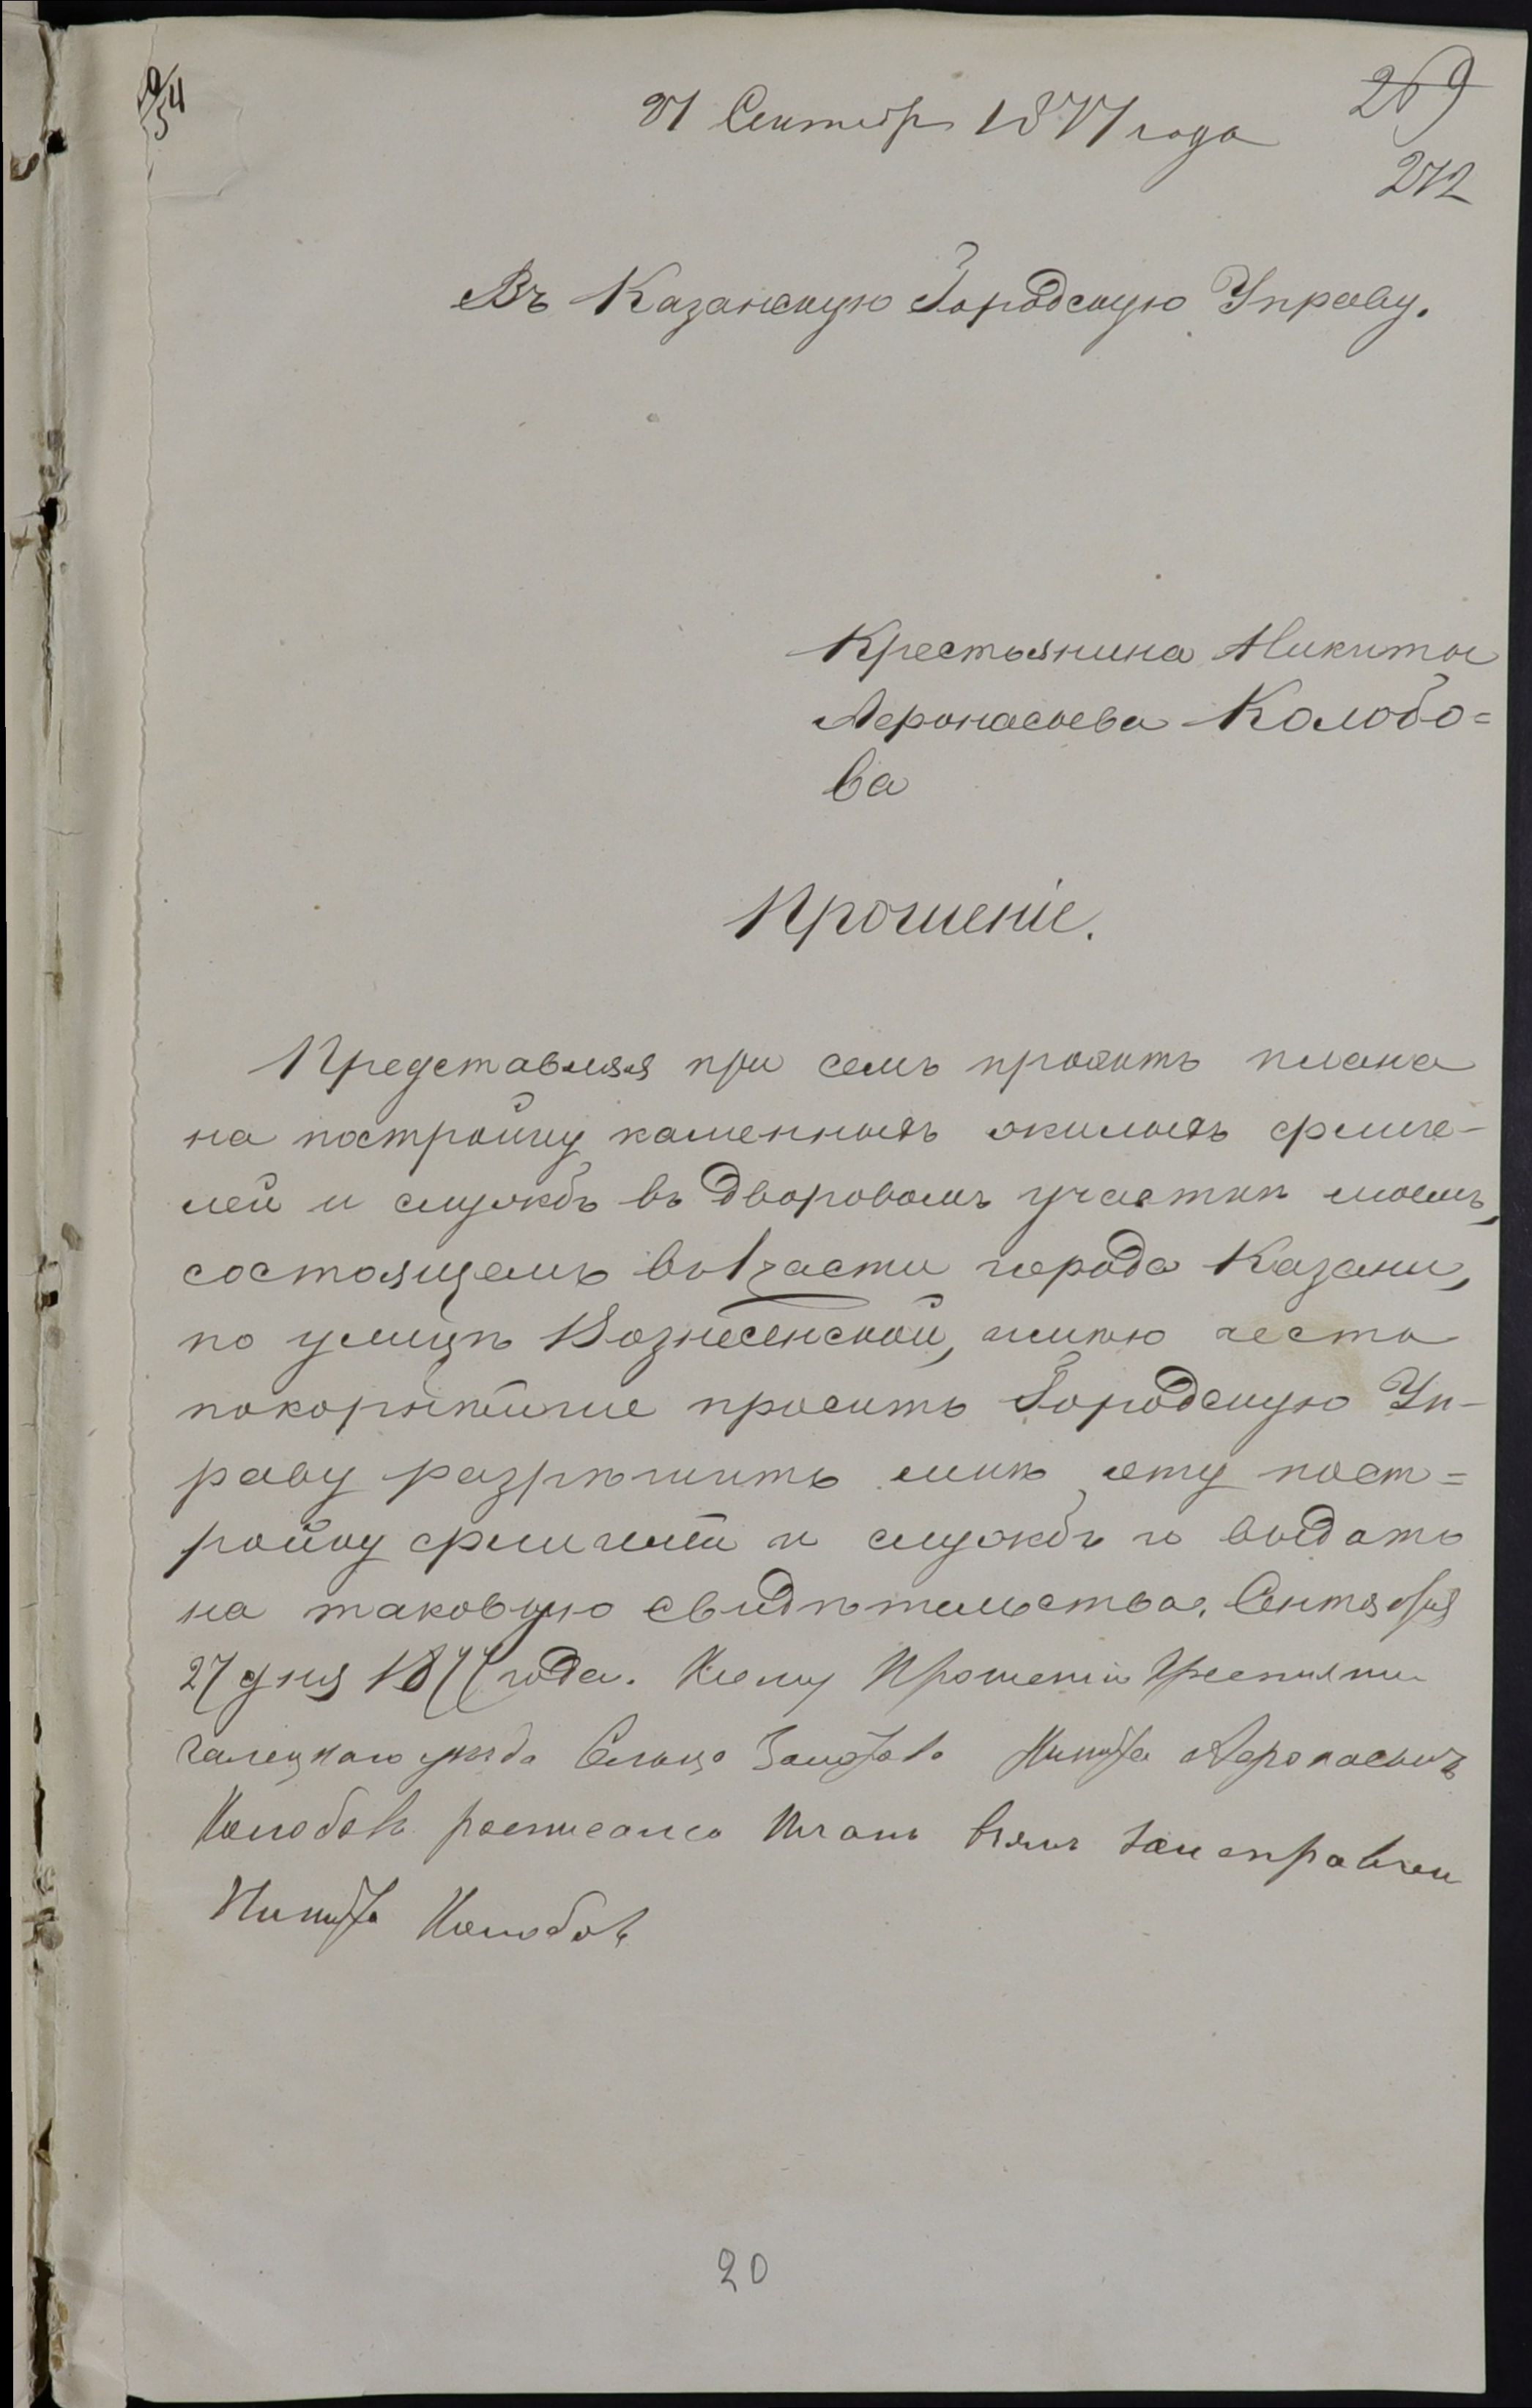 27 Сентябр 1877 года
269
272
Въ Казанскую Городскую Управу.
Крестьянина Никиты
Афонасьева Колобо=
ва
Прошеніе.
Представляя при семъ проэктъ плана
на постройку каменныхъ жилыхъ флиге-
лей и службъ въ дворовомъ участкѣ моемъ,
состоящемъ во 1 части города Казани,
по улицѣ Вознесенской, имѣю честь
покорнѣйше просить Городскую Уп-
раву разрѣшить мнѣ эту пост=
ройку флигелей и службъ и выдать
на таковую свидѣтельство. Сентября
27 дня 1877 года. Къ сему Прошенію Крестьянин
уезда Никита Афонасьевъ
Колобовъ росписался Планъ взялъ
Никита Колобовъ
20